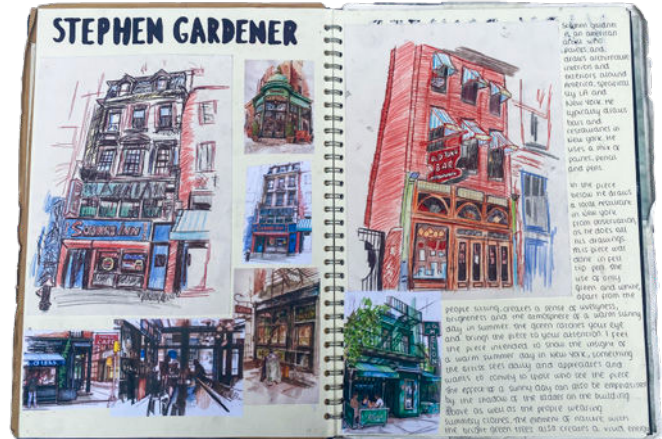 STEPHEN GARDENER
SQUARE INN
OLD TOWN
BAR
Stephen Gardener
is an american
artist who
paints and
draws architecture
interiors and
exteriors around
America, specifically
LA and
New York. He
typically draws
bars and
restaurants in
New York. He
uses a mix of
paints, pencil
and pens.
In the piece
below he draws
a local restaurant
in New York
from observation,
as he does all
his drawings.
This piece was
done in felt
tip pen. The
use of only
green and white,
apart from the
people sitting, creates a sense of liveliness,
brightness and the atmosphere of a warm sunny
day in summer. The green catches your eye
and brings the piece to your attention. I feel
the piece intended to show the insight of
a warm summer day in New York, something
the artist sees daily and appreciates and
wants to convey to those who see the piece.
The effect of a sunny day can also be emphasised
by the shadow of the ladder on the building
above as well as the people wearing
summery clothes. The element of nature with
the bright green trees also creates a vivid energy